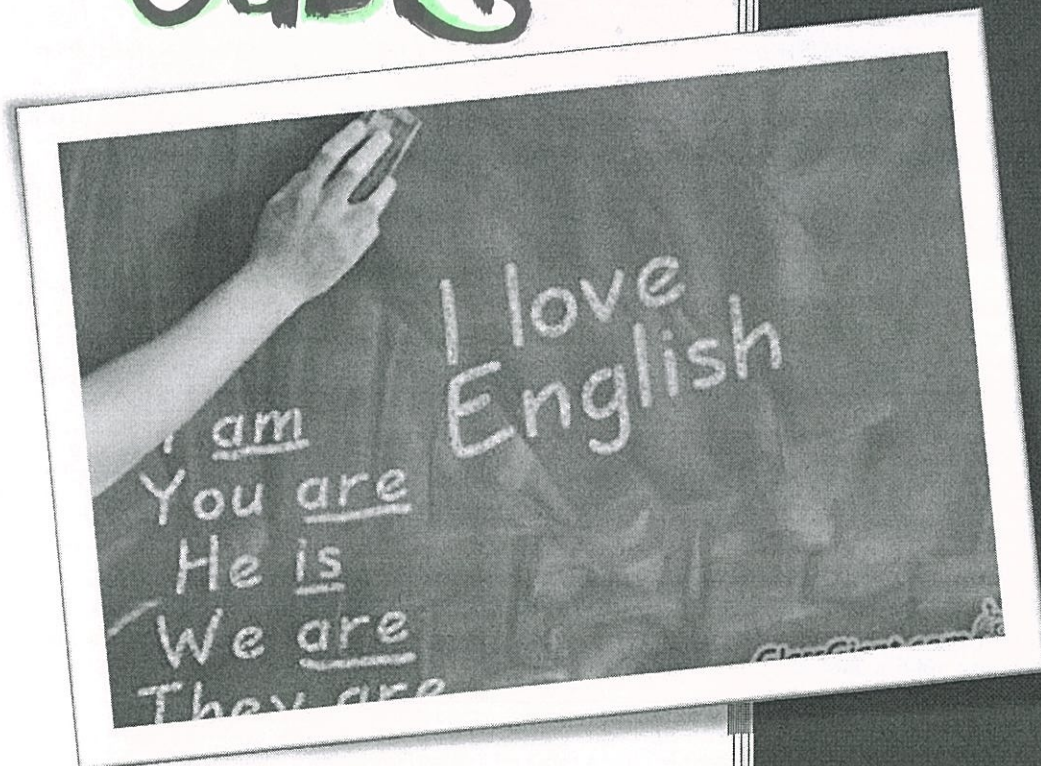 I love
English
I am
You are
He is
We are
They are